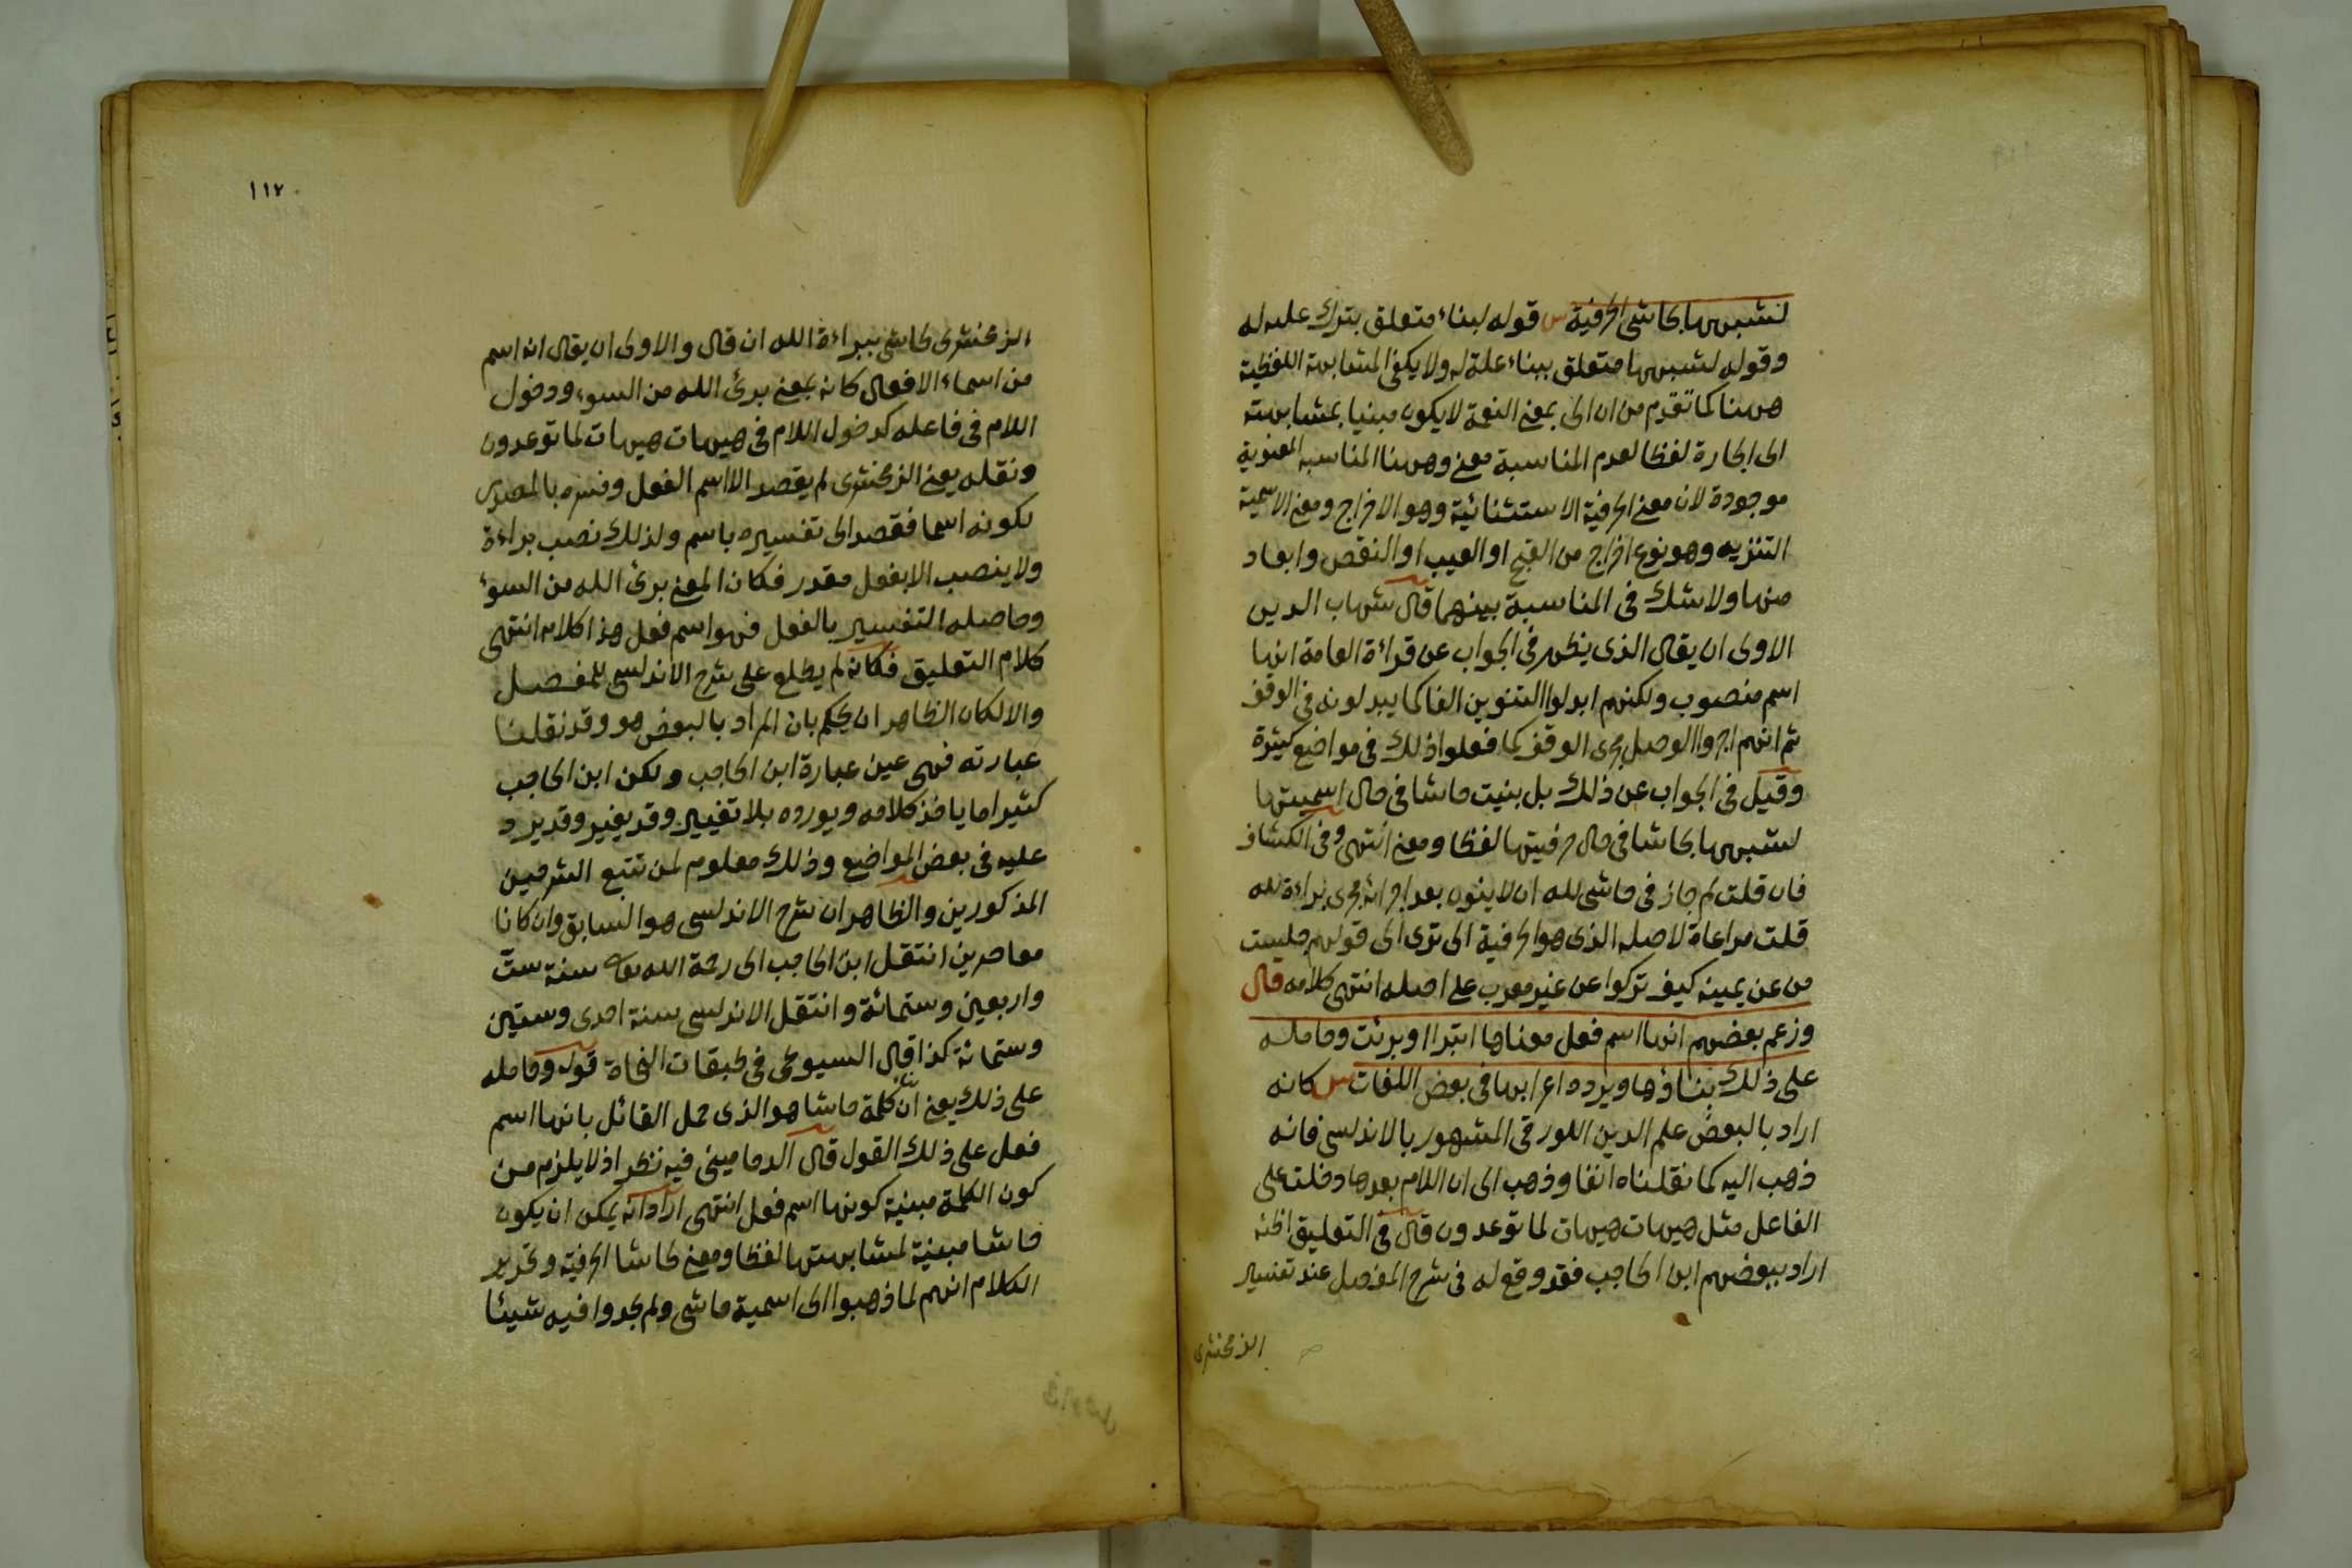 لشبهها بحاشى الحرفية س قوله لبناء متعلق بترك علله له
وقوله لشبهها متعلق ببناء علة له ولا يكفى المشابهة اللفظية
ههنا كما تقدم من ان الى بمعنى النعمة لا يكون مبنيا بمشابهته
الى الجارة لفظا لعدم المناسبة معنى وههنا المناسبة المعنوية
موجودة لان معنى الحرفية الاستثنائية وهو الاخراج ومعنى الاسمية
التنزيه وهو نوع اخراج من القبح او العيب او النقص وابعاد
منها ولا شك فى المناسبة بينهما قال شهاب الدين
الاولى ان يقال الذى يظهر فى الجواب عن قراءة العامة انها
اسم منصوب ولكنهم ابدلوا التنوين الفا كما يبدلونه فى الوقف
ثم انهم اجروا الوصل مجرى الوقف كما فعلوا ذلك فى مواضع كثيرة
وقيل فى الجواب عن ذلك بل بنيت حاشا فى حال اسميتها
لشبهها بحاشا فى حال حرفيتها لفظا ومعنى انتهى وفى الكشاف
فان قلت لم جاز فى حاشى لله ان لا ينون بعد اجرائه مجرى براءة لله
قلت مراعاة لاصله الذى هو الحرفية الى ترى الى قولهم جلست
من عن يمينه كيف تركوا عن غير معرب على اصله انتهى كلامه قال
وزعم بعضهم انها اسم فعل معناها اتبرا او برئت وحامله
على ذلك بناؤها ويرده اعرابها فى بعض اللغات س كانه
اراد بالبعض علم الدين اللورقى المشهور بالاندلسى فانه
ذهب اليه كما نقلناه انفا وذهب الى ان اللام بعدها دخلت على
الفاعل مثل هيهات هيهات لما توعدون قال فى التعليق اظنه
اراد ببعضهم ابن الحاجب فقد وقع له فى شرح المفصل عند تفسير
الزمخشرى
١١٧
الزمخشرى حاشى ببراءة الله ان قال والاولى ان يقال انه اسم
من اسماء الافعال كانه بمعنى برئ الله من السوء ودخول
اللام فى فاعله كدخول اللام فى هيهات هيهات لما توعدون
ونقله يعنى الزمخشرى لم يقصد الا اسم الفعل وفسره بالمصدر
لكونه اسما فقصد الى تفسيره باسم ولذلك نصب براءة
ولا ينصب الا بفعل مقدر فكان المعنى برئ الله من السوء
وحاصله التفسير بالفعل فهو اسم فعل هذا كلامه انتهى
كلام التعليق فكانه لم يطلع على شرح الاندلسى للمفصل
والا لكان الظاهر ان يحكم بان المراد بالبعض هو وقد نقلنا
عبارته فهى عين عبارة ابن الحاجب ولكن ابن الحاجب
كثيرا ما ياخذ كلامه ويورده بلا تغيير وقد يغير وقد يرد
عليه فى بعض المواضع وذلك معلوم لمن تتبع الشرحين
المذكورين والظاهر ان شرح الاندلسى هو السابق وان كانا
معاصرين انتقل ابن الحاجب الى رحمة الله تعالى سنة ست
واربعين وستمائة وانتقل الاندلسى سنة احدى وستين
وستمائة كذا قال السيوطى فى طبقات النحاة قوله وحامله
على ذلك يعنى ان كلمة حاشا هو الذى حمل القائل بانها اسم
فعل على ذلك القول قال الدمامينى فيه نظر اذ لا يلزم من
كون الكلمة مبنية كونها اسم فعل انتهى اراد انه يمكن ان يكون
حاشا مبنية لمشابهتها لفظا ومعنى لحاشا الحرفية وتحرير
الكلام انهم لما ذهبوا الى اسمية حاشى ولم يجدوا فيه شيئا